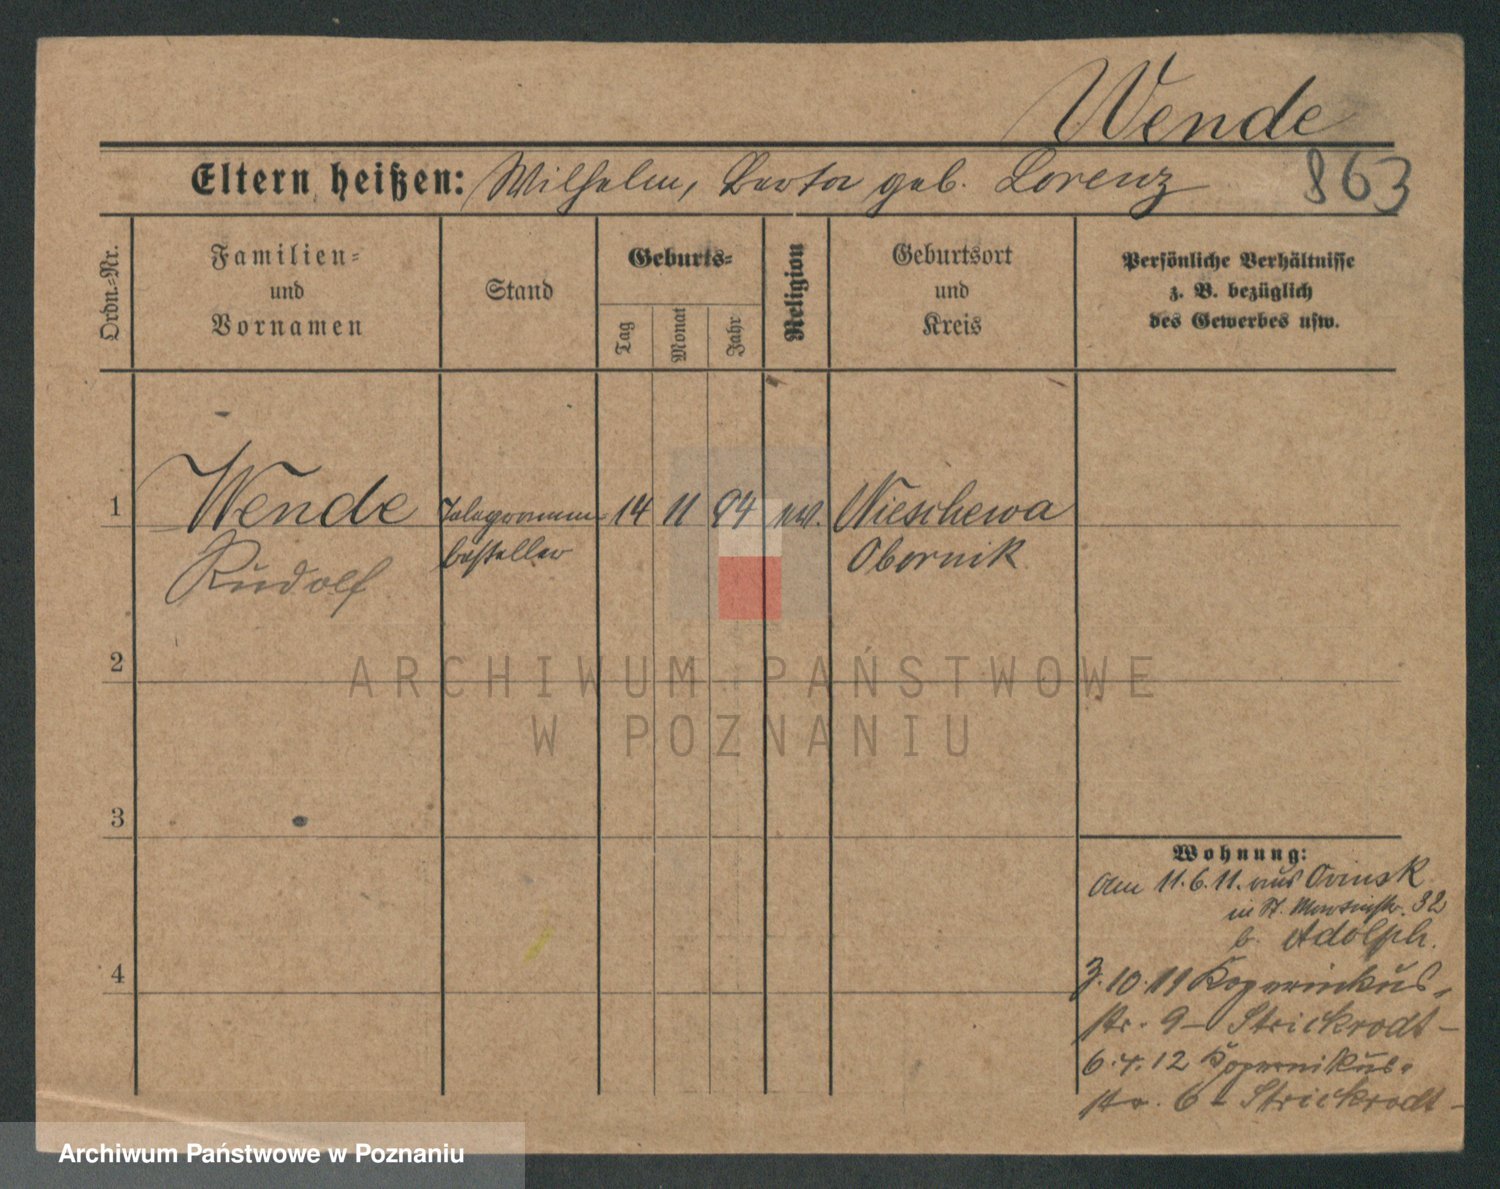 Wende
Eltern heißen: Wilhelm, Berta geb. Lorenz 863
Ordn.-Nr.
Familien=
und
Vornamen
Stand
Geburts=
Tag
Monat
Jahr
Religion
Geburtsort
und
Kreis
Persönliche Verhältnisse
z. B. bezüglich
des Gewerbes usw.
1 Wende Telegramm= 14 11 94 ev. Nieschewa
Rudolf besteller Obornik
2
3
4
Wohnung:
Am 11.6.11. aus
in St. Martinstr. 32
b. Adolph.
3.10.11 Kopernikus=
str. 9 – Strickrodt –
6.4.12 Kopernikus=
str. 6 – Strickrodt –
ARCHIWUM PAŃSTWOWE
W POZNANIU
Archiwum Państwowe w Poznaniu